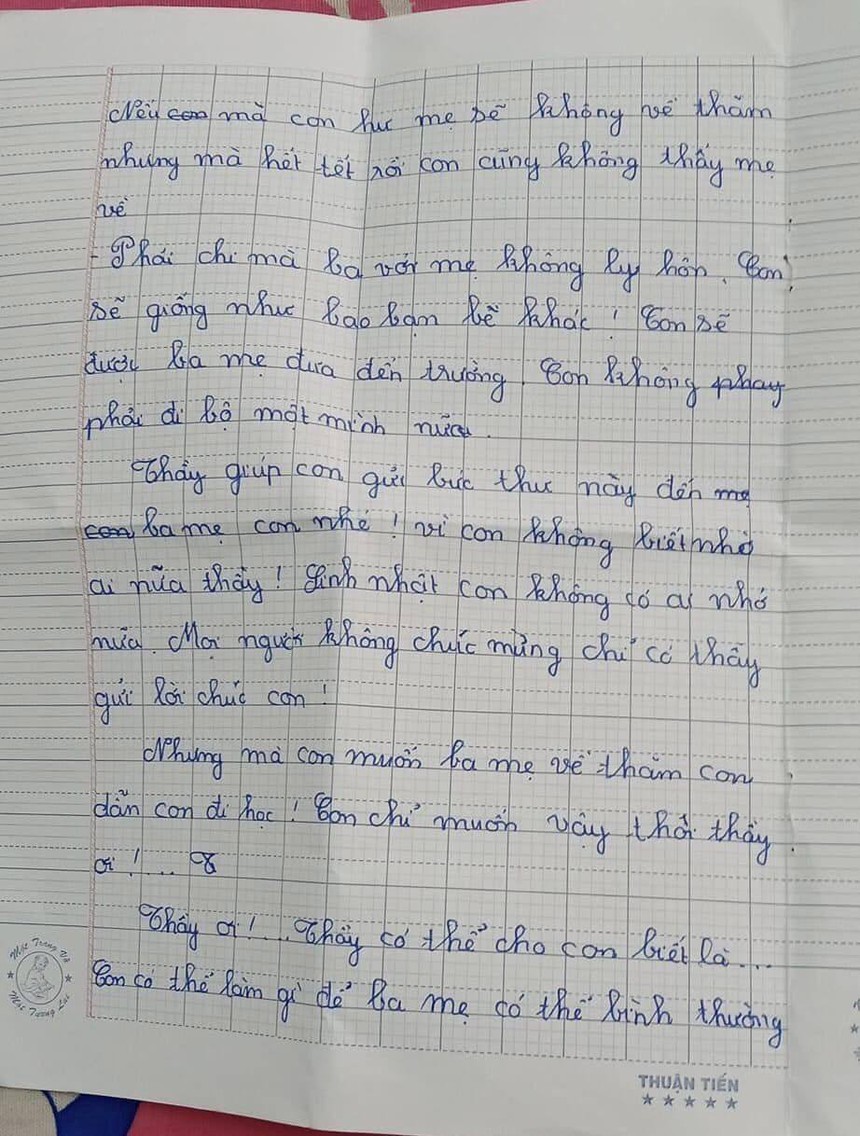 Nếu con mà con hư mẹ sẽ không về thăm
nhưng mà hết tết rồi con cũng không thấy mẹ
về
- Phải chi mà ba với mẹ không ly hôn. Con
sẽ giống như bao bạn bè khác! Con sẽ
được ba mẹ đưa đến trường. Con không phay
phải đi bộ một mình nữa.
Thầy giúp con gửi bức thư này đến mẹ
con ba mẹ con nhé! vì con không biết nhờ
ai nữa thầy! Sinh nhật con không có ai nhớ
nữa. Mọi người không chúc mừng chỉ có thầy
gửi lời chúc con!
Nhưng mà con muốn ba mẹ về thăm con
dẫn con đi học! Con chỉ muốn vậy thôi thầy
ơi!...
Thầy ơi!... Thầy có thể cho con biết là...
Con có thể làm gì để ba mẹ có thể bình thường
Một Trang Vở
Một Tương Lai
THUẬN TIẾN